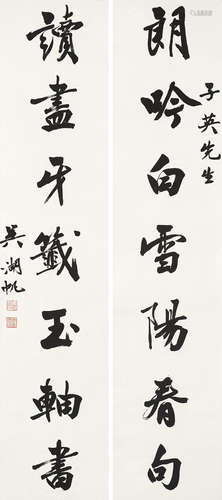 子英先生
朗吟白雪陽春句
讀盡牙籤玉軸書
吳湖帆